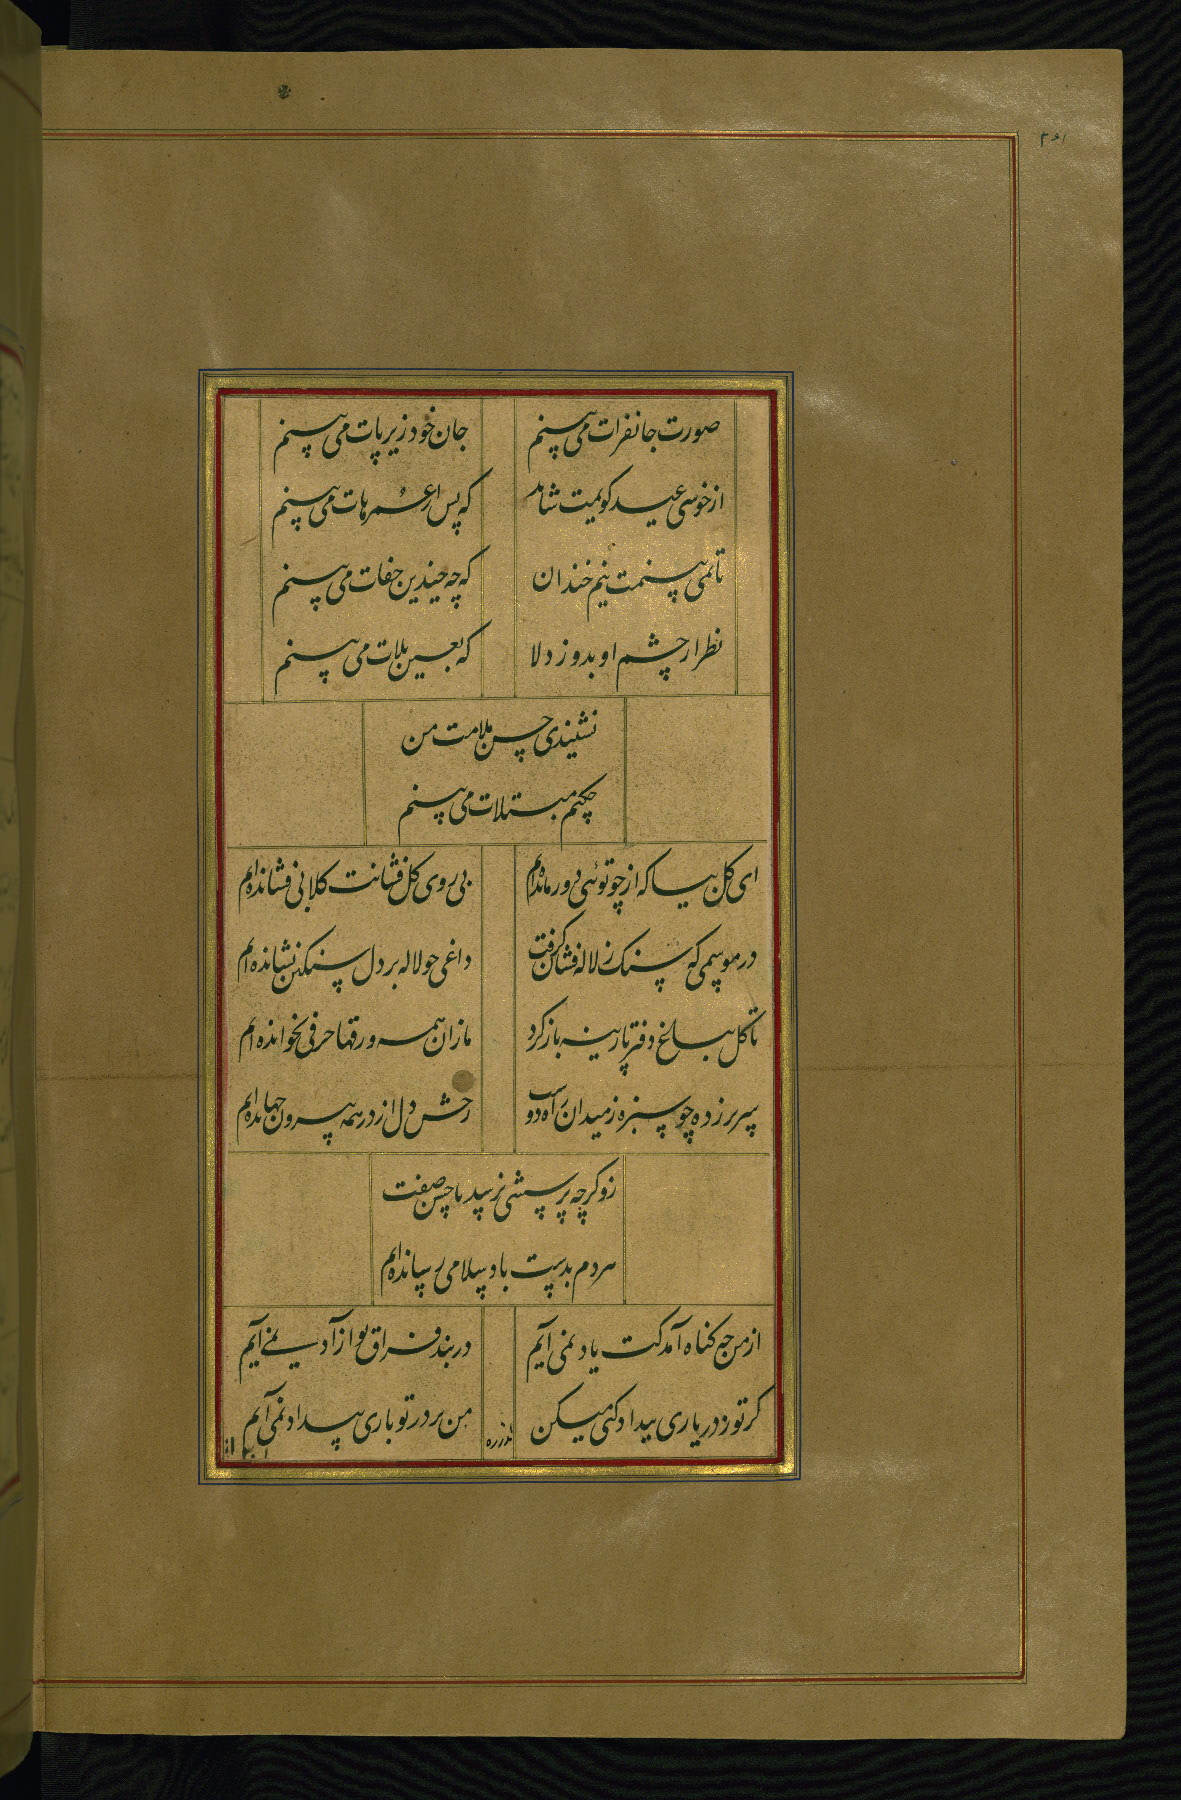 ۲۶۱
صورت جانفرات می بینم
جان خود زیر پات می بینم
از خوشی عید کویمت شاید
که پس از عمرهات می بینم
تا نمی بینمت نیم خندان
که چه چندین جفات می بینم
نظر از چشم او بدوز دلا
که بعین بلات می بینم
نشنیدی حسن ملامت من
چکنم مبتلات می بینم
ای کل بیا که از چو توئی دور مانده ایم
بی روی کل فشانت کلابی فشانده ایم
در موسمی که سنک ز لاله فشان کرفت
داغی چو لاله بر دل سنکین نشانده ایم
تا کل بباغ دفتر پارینه باز کرد
ما زان همه ورقها حرفی نخوانده ایم
سر بر زده چو سبزه ز میدان راه دوست
رخش دل از در همه بیرون جهانده ایم
زو کرچه پرسشی نرسید با حسن صفت
هر دم بدست باد سلامی رسانده ایم
از من چه کناه آمد کت یاد نمی آیم
در بند فراق تو آزاد نمی آیم
کر تو ز در یاری بیداد کنی میکن
من بر در تو باری بیداد نمی آیم